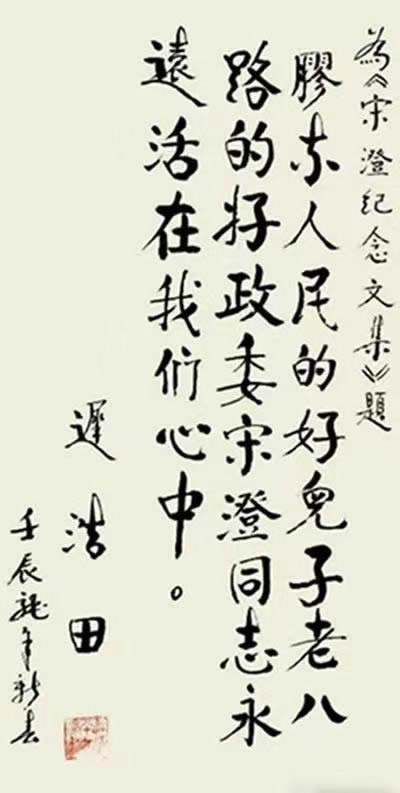 为《宋澄纪念文集》題
膠东人民的好兒子老八
路的好政委宋澄同志永
遠活在我们心中。
遲浩田
壬辰龍年新春